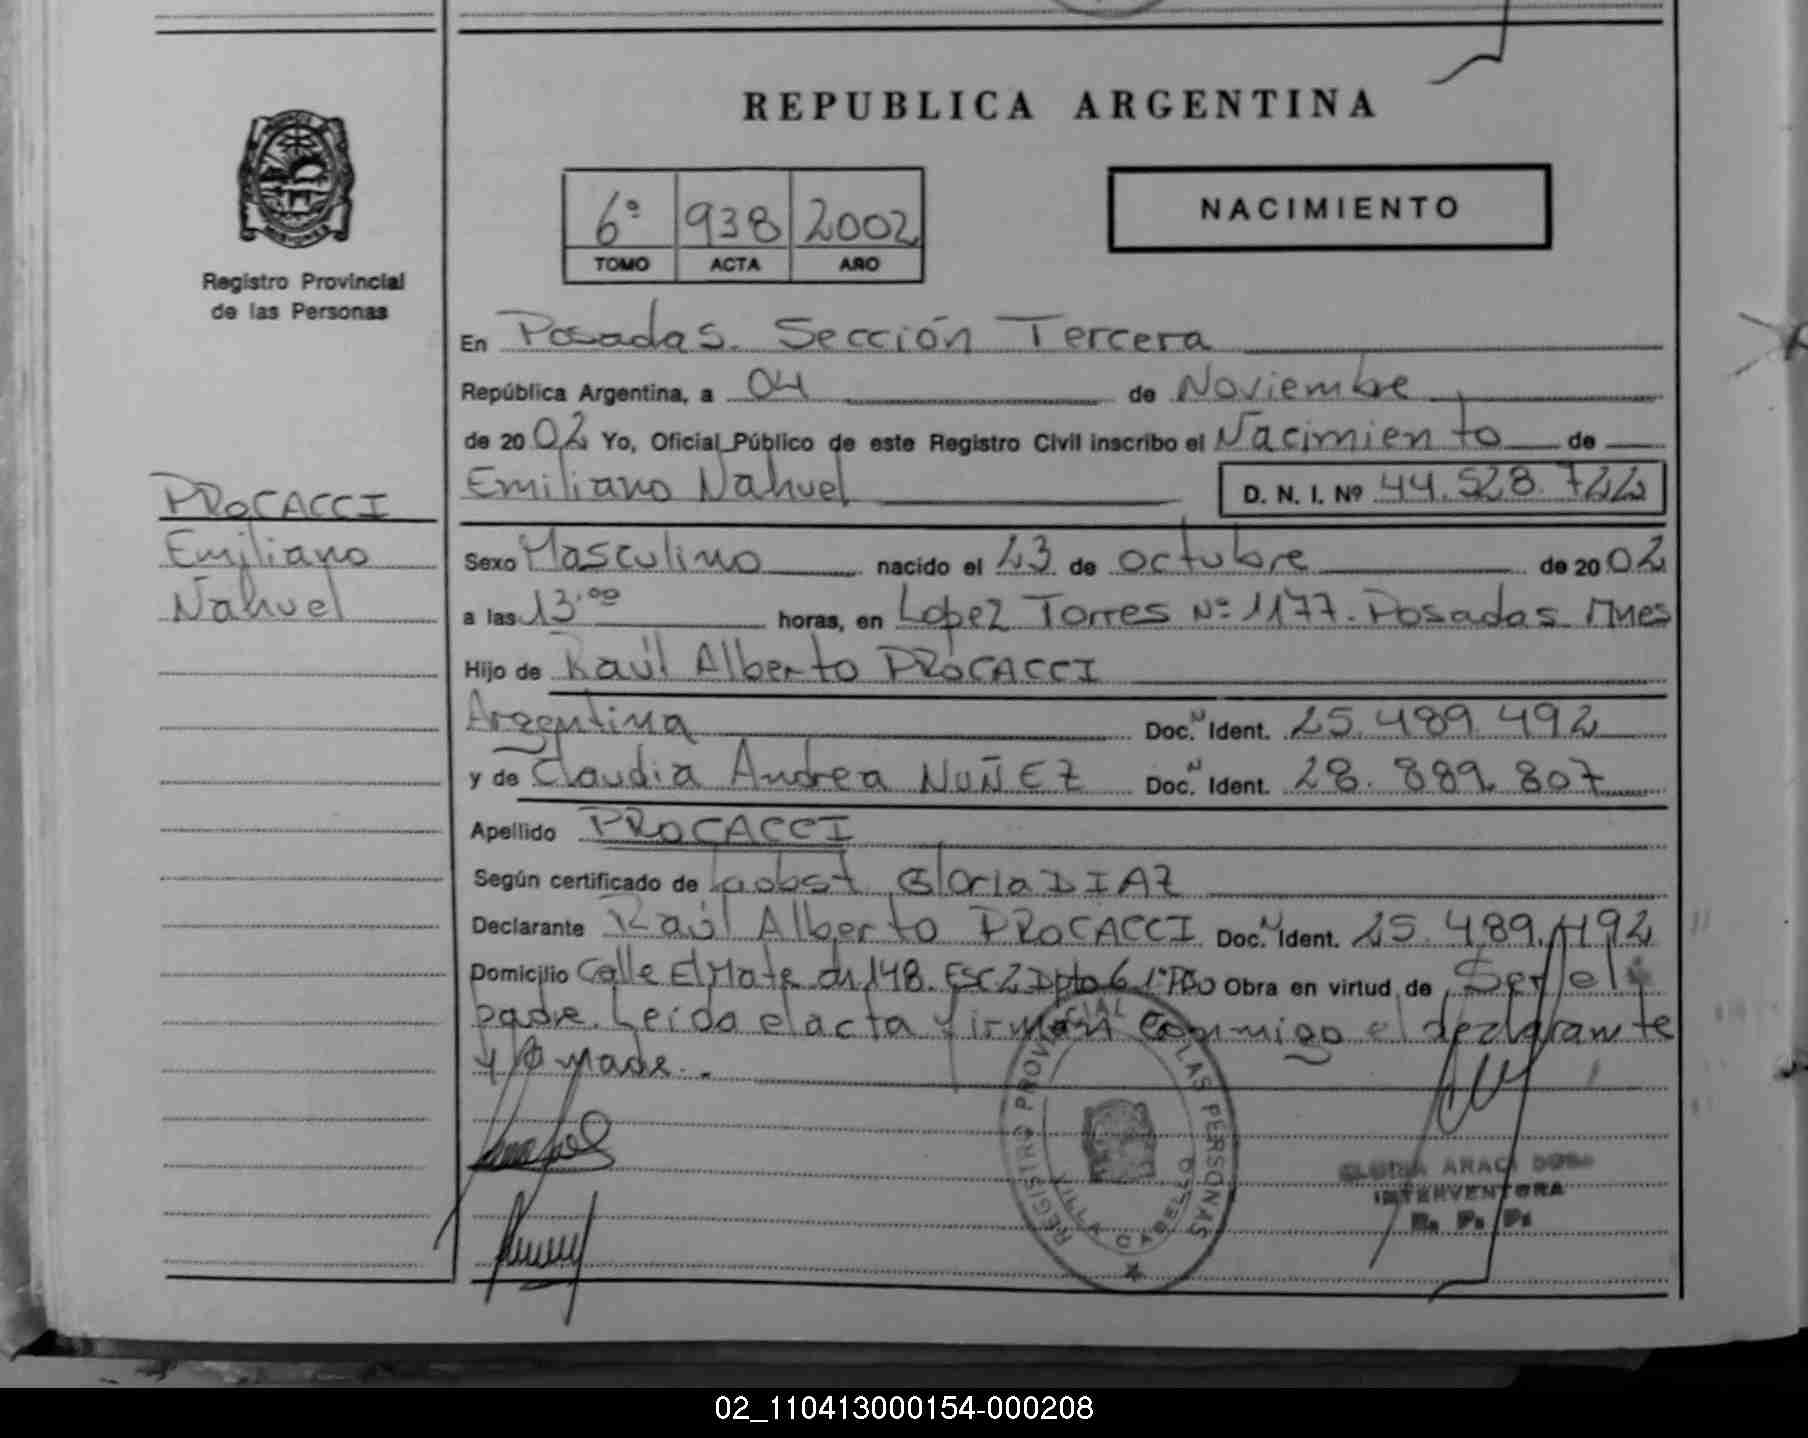 REPUBLICA ARGENTINA
6º 938 2002
TOMO ACTA AÑO
NACIMIENTO
Registro Provincial
de las Personas
PROCACCI
Emiliano
Nahuel
En Posadas. Sección Tercera
República Argentina, a 04 de Noviembre
de 2002 Yo, Oficial Público de este Registro Civil inscribo el Nacimiento de
Emiliano Nahuel D. N. I. Nº 44.528.722
Sexo Masculino nacido el 23 de octubre de 2002
a las 13.ºº horas, en Lopez Torres Nº 1177. Posadas Mnes
Hijo de Raúl Alberto PROCACCI
Argentina Doc. N Ident. 25.489.492
y de Claudia Andrea NUÑEZ Doc. N Ident. 28.889.807
Apellido PROCACCI
Según certificado de Gloria DIAZ
Declarante Raúl Alberto PROCACCI Doc. N Ident. 25.489.492
Domicilio Calle El Mate ch 148. Esc 2 Dpto 6 1º Obra en virtud de Ser el
padre. Leída el acta firman conmigo el declarante
y la madre.
REGISTRO PROVINCIAL LAS PERSONAS
VILLA CABELLO
INTERVENTORA
02_110413000154-000208